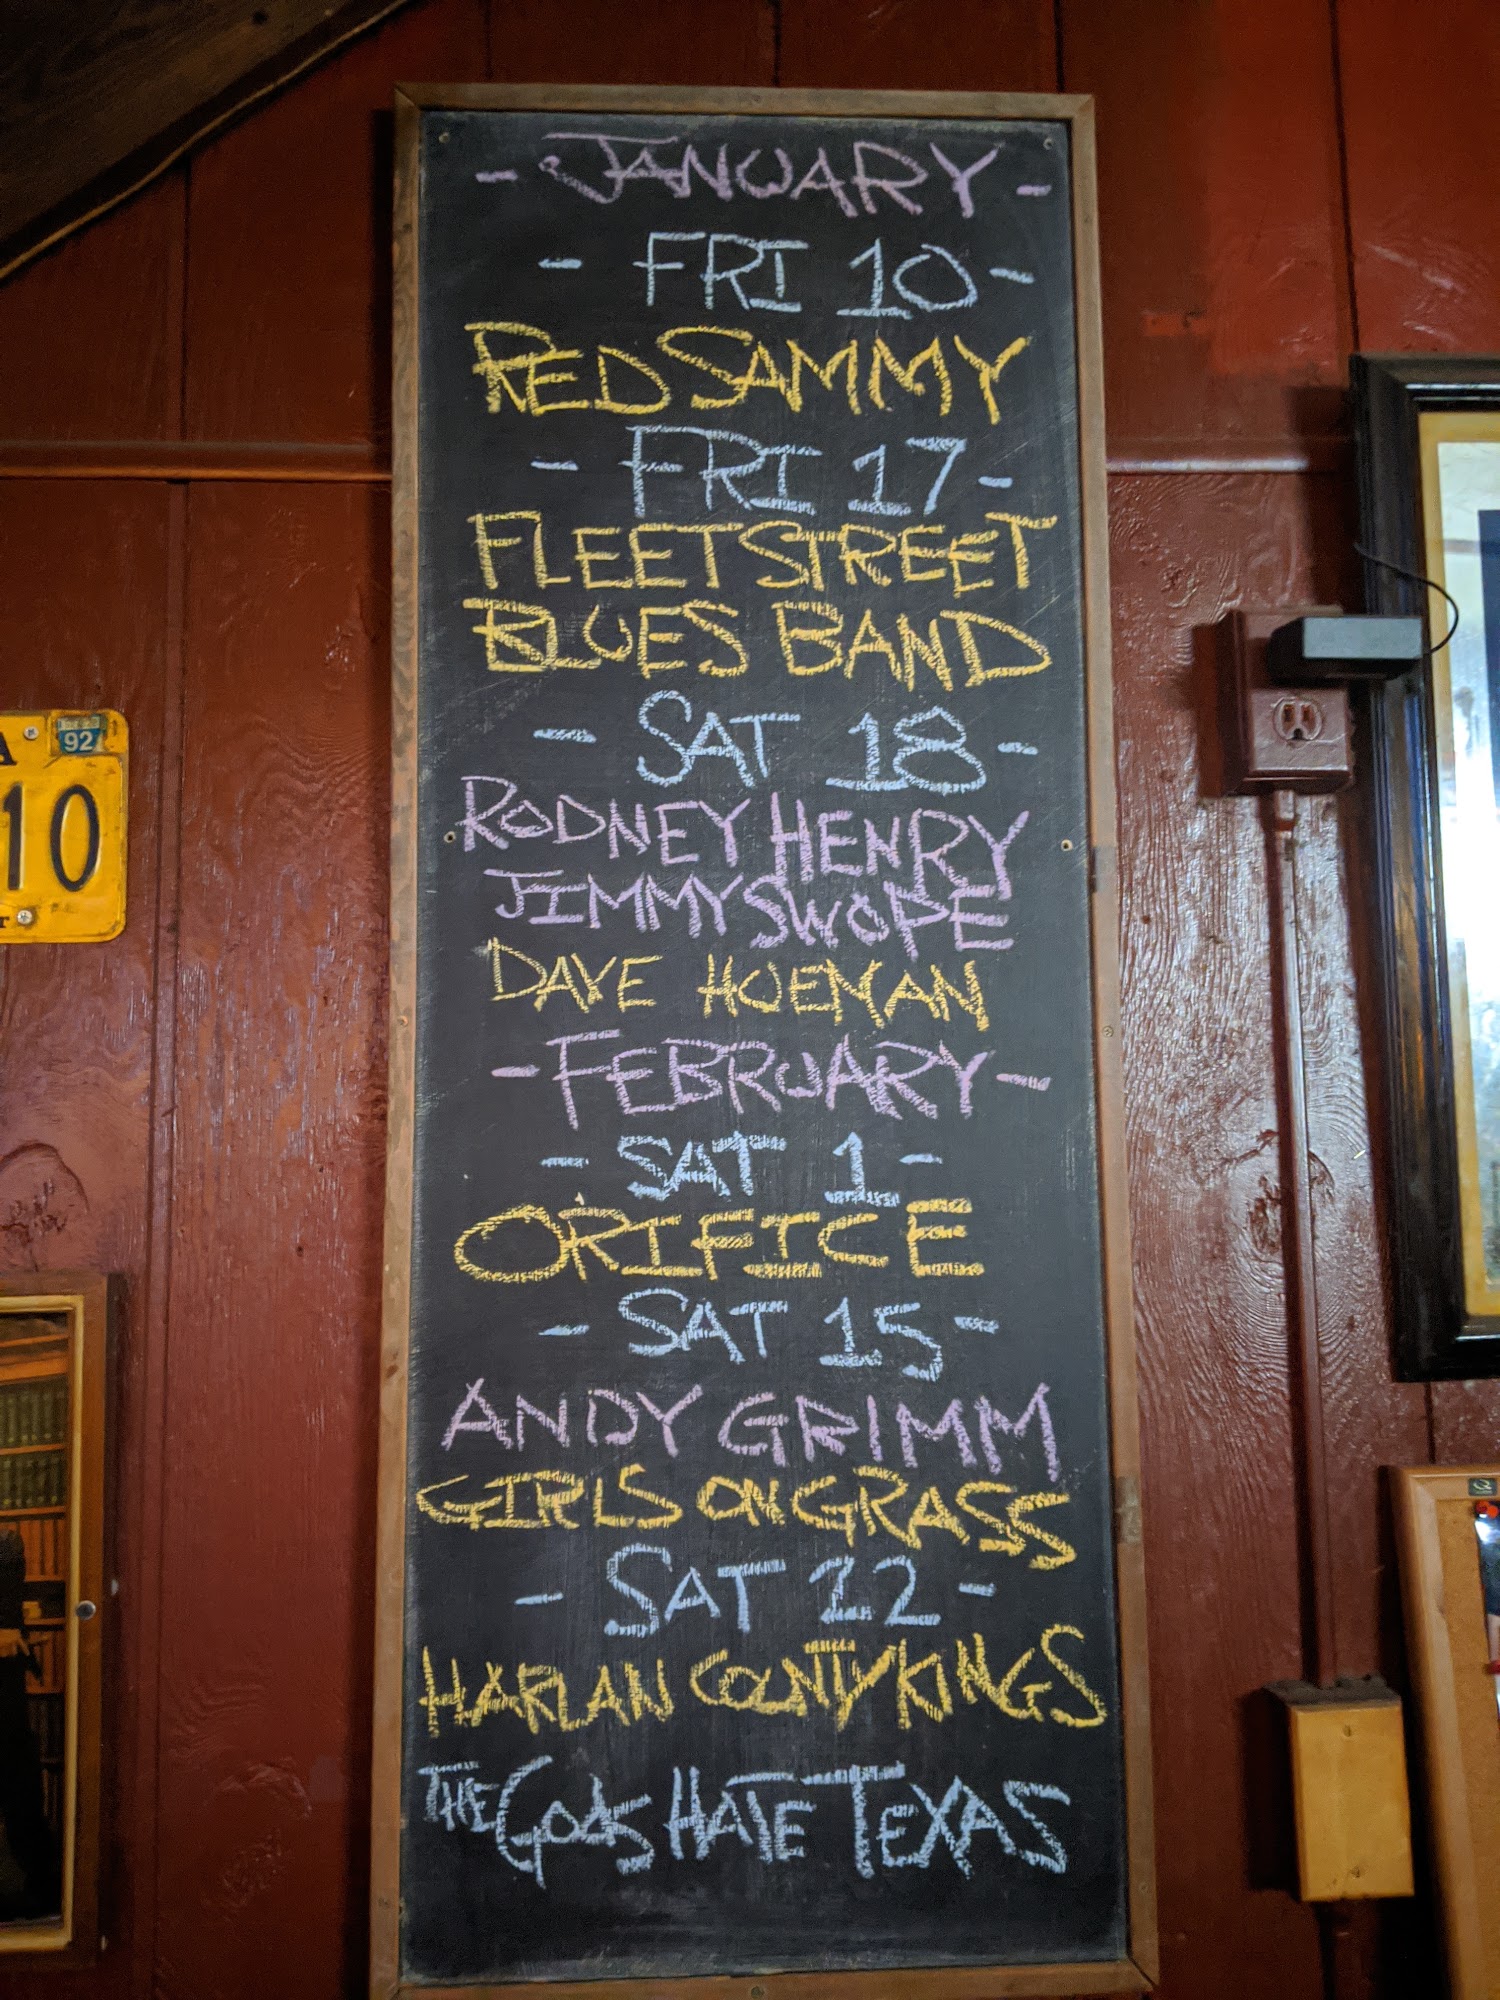 - JANUARY -
- FRI 10 -
RED SAMMY
- FRI 17 -
FLEET STREET
BLUES BAND
- SAT 18 -
RODNEY HENRY
JIMMY SWOPE
DAVE HUEMAN
- FEBRUARY -
- SAT 1 -
ORIFICE
- SAT 15 -
ANDY GRIMM
GIRLS ON GRASS
- SAT 22 -
HARLAN COUNTY KINGS
THE GODS HATE TEXAS
92
10